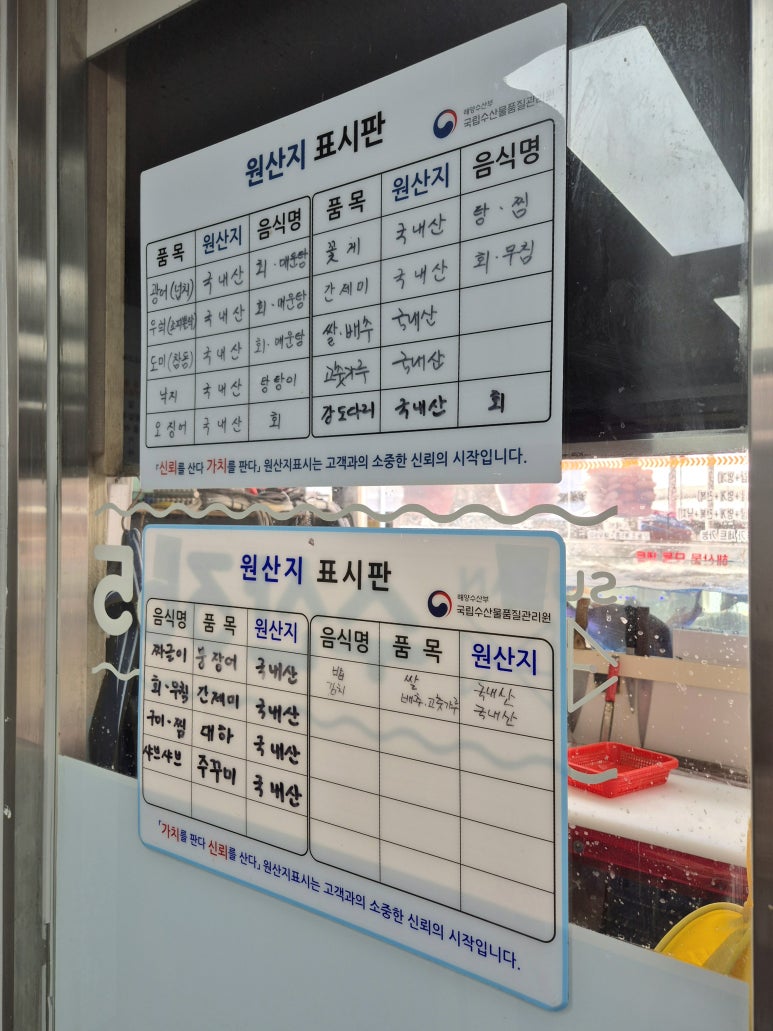 원산지 표시판
해양수산부
국립수산물품질관리원
품목 원산지 음식명
광어(넙치) 국내산 회·매운탕
우럭 국내산 회·매운탕
도미(참돔) 국내산 회·매운탕
낙지 국내산 탕탕이
오징어 국내산 회
품목 원산지 음식명
꽃게 국내산 탕·찜
간제미 국내산 회·무침
쌀·배추 국내산
고춧가루 국내산
강도다리 국내산 회
「신뢰를 산다 가치를 판다」 원산지표시는 고객과의 소중한 신뢰의 시작입니다.
원산지 표시판
해양수산부
국립수산물품질관리원
음식명 품목 원산지
짜글이 붕장어 국내산
회·무침 간제미 국내산
구이·찜 대하 국내산
샤브샤브 주꾸미 국내산
음식명 품목 원산지
밥 쌀 국내산
김치 배추·고춧가루 국내산
「가치를 판다 신뢰를 산다」 원산지표시는 고객과의 소중한 신뢰의 시작입니다.